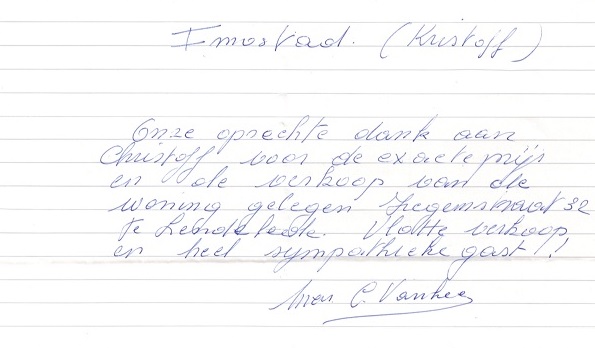 Imostad. (Kristoff)
Onze oprechte dank aan
Christoff voor de exacte prijs
en de verkoop van de
woning gelegen Izegemstraat 32
te Lendelede. Vlotte verkoop
en heel sympathieke gast!
C. Vanhee